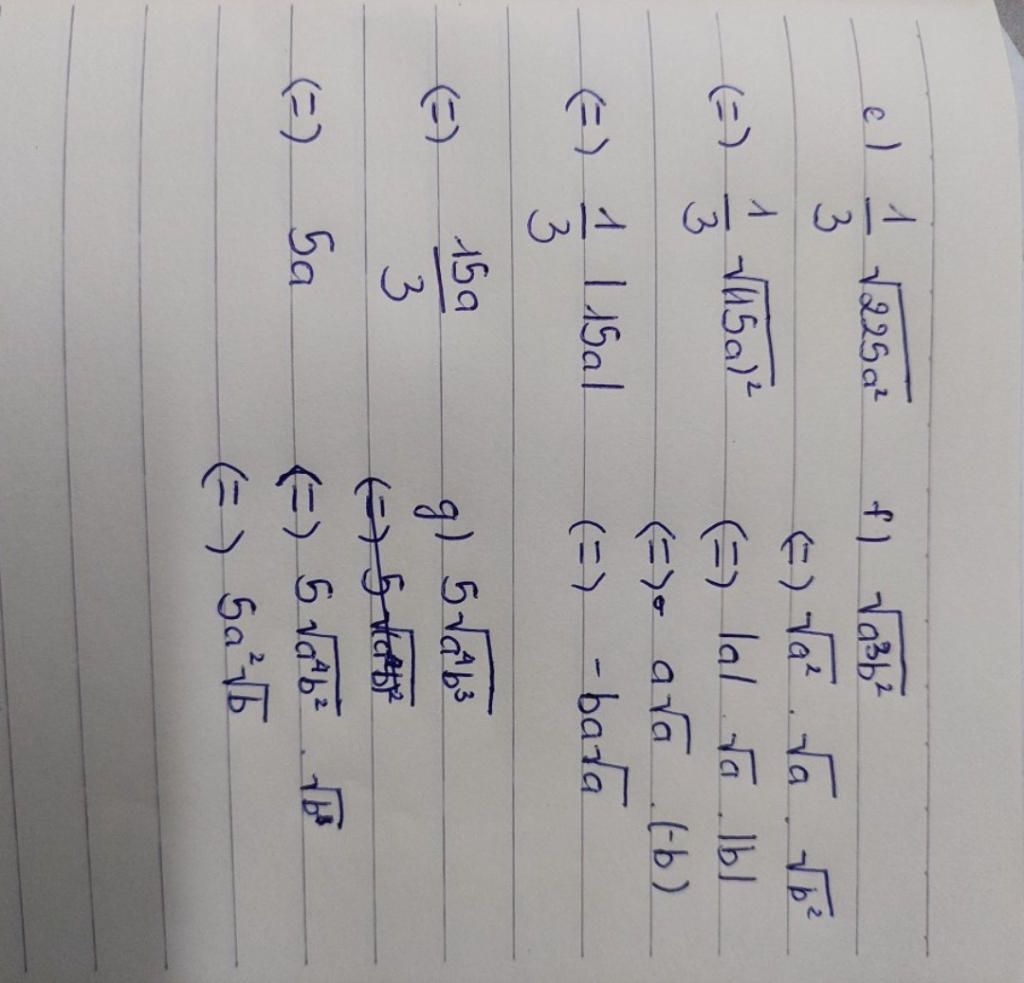 e) 1/3 √225a²
(=) 1/3 √(15a)²
(=) 1/3 |15a|
(=) 15a/3
(=) 5a
f) √a³b²
(=) √a² . √a . √b²
(=) |a| . √a . |b|
(=) a√a . (-b)
(=) -ba√a
g) 5√a⁴b³
(=) 5√a⁴b²
(=) 5√a⁴b² . √b
(=) 5a²√b